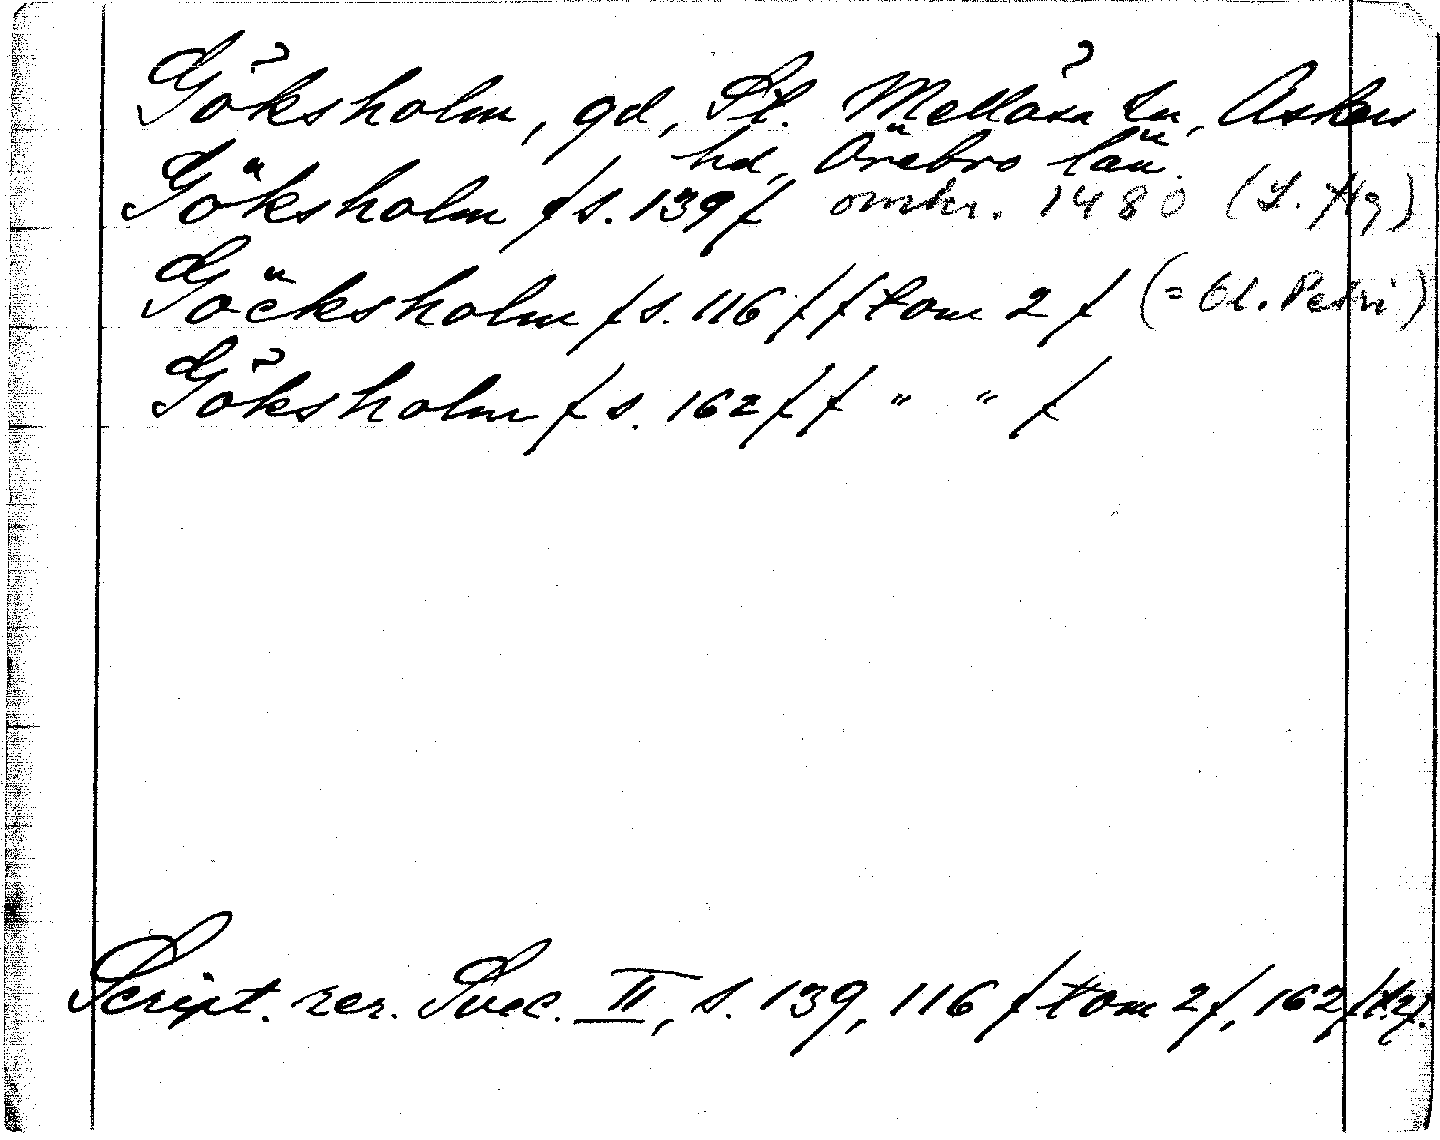 Göksholm, gd, St. Mellösa sn, Askers
hd, Örebro län.
Göksholm /s. 139/ omkr. 1480 (S. Hg)
Göcksholm /s. 116/ /tom 2/ (= Ol. Petri)
Göksholm /s. 162/ / " " /
Script. rer. Svec. II, s. 139, 116 /tom 2/, 162 /t. 2/.